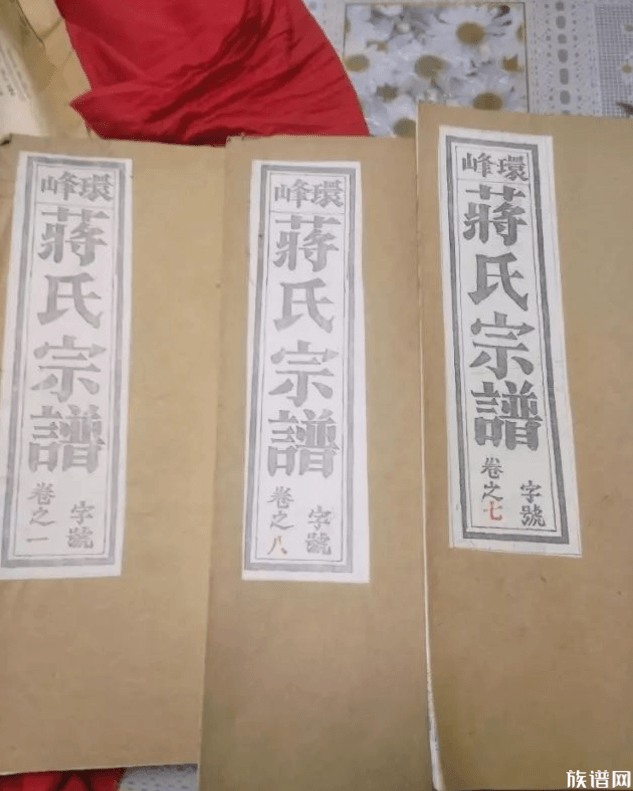 環峰
蔣氏宗譜
字號
卷之一
環峰
蔣氏宗譜
字號
卷之八
環峰
蔣氏宗譜
字號
卷之七
族谱网